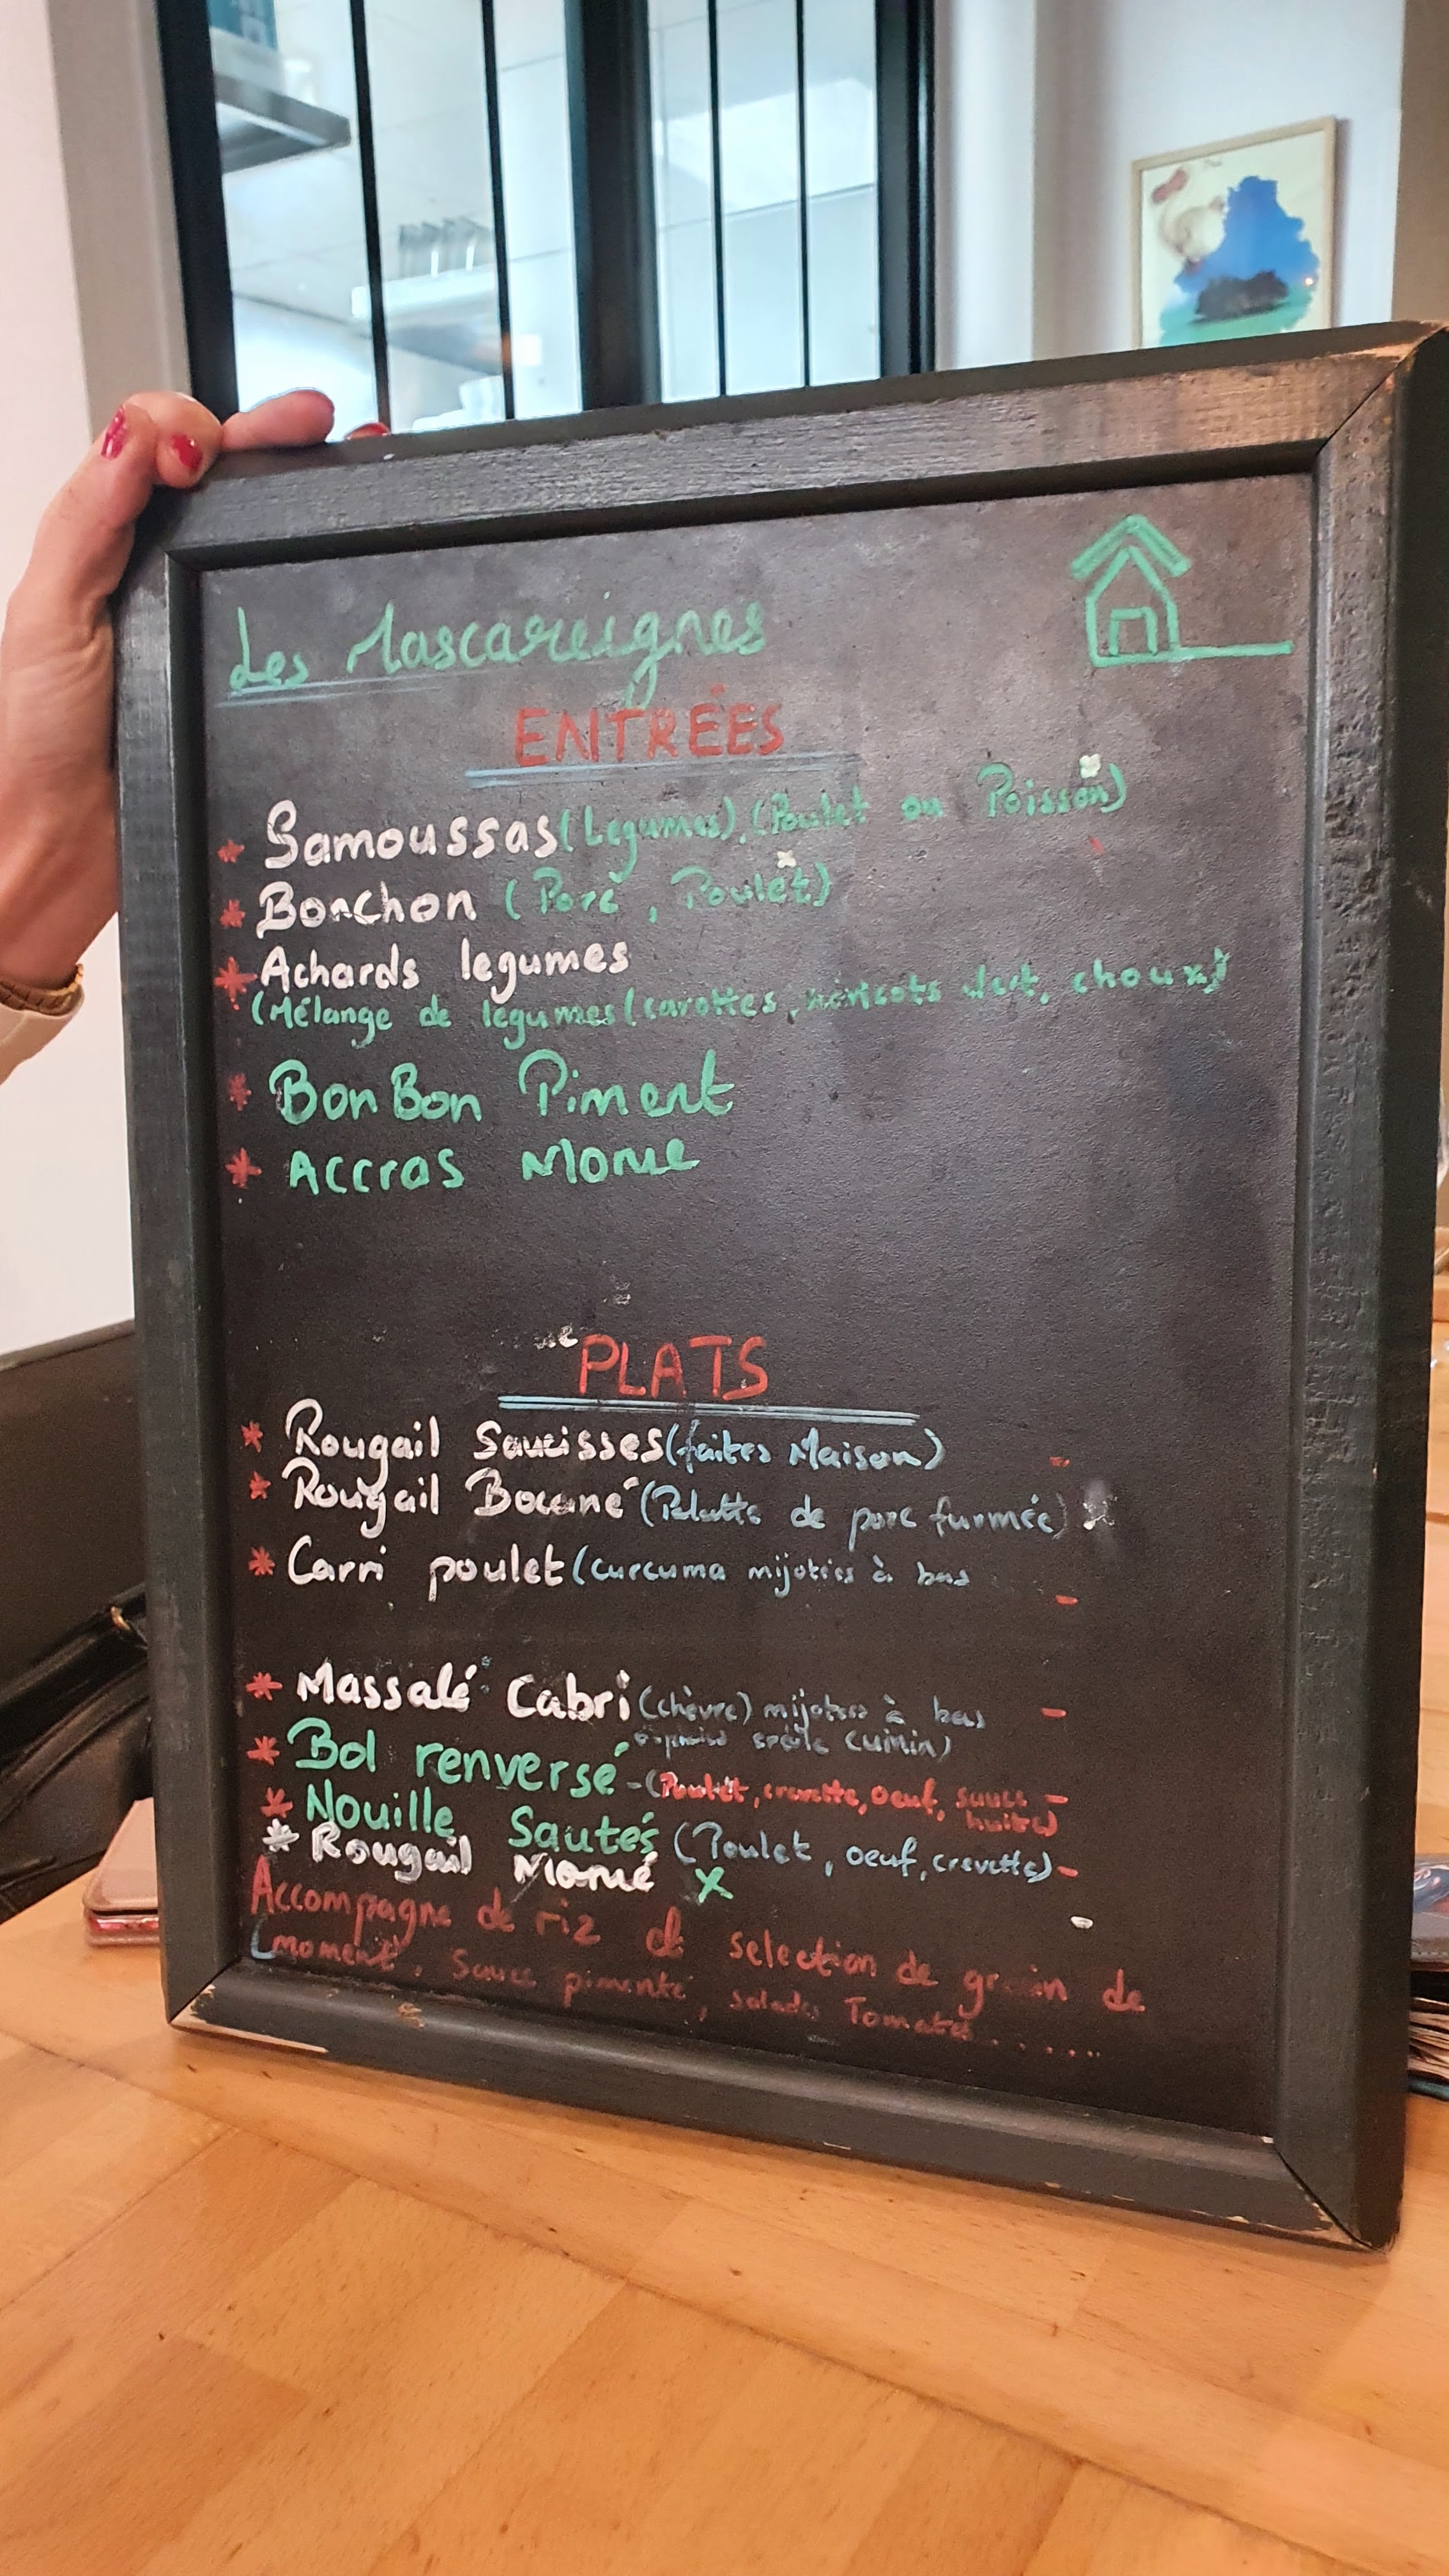 Les Mascareignes
ENTRÉES
* Samoussas (Légumes), (Poulet ou Poisson)
* Bonchon (Porc, Poulet)
* Achards legumes
(Mélange de légumes (carottes, haricots vert, choux)
* BonBon Piment
* Accras Morue
PLATS
* Rougail Saucisses (faites Maison)
* Rougail Boucané (Palette de porc furmée)
* Carri poulet (curcuma mijotés à bas
* Massalé Cabri (chèvre) mijotés à bas
cumin)
* Bol renversé - (Poulet, crevette, oeuf, sauce
huitre)
* Nouille Sautés (Poulet, oeuf, crevette)
* Rougail Morué x
Accompagne de riz et selection de grain de
moment, Sauce pimenté, salades Tomates.....